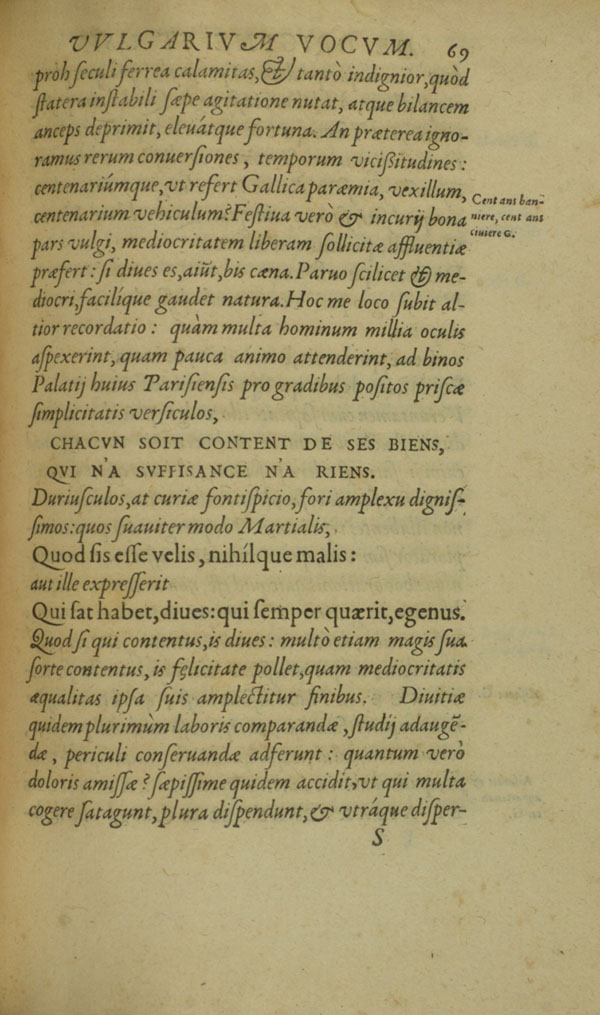 VVLGARIVM VOCVM. 69
pròh ſeculi ferrea calamitas, & tantò indignior, quòd
ſtatera inſtabili ſæpe agitatione nutat, atque bilancem
anceps deprimit, eleuátque fortuna. An præterea igno-
ramus rerum conuerſiones, temporum viciſsitudines:
centenariúmque, vt refert Gallica parœmia, vexillum,
centenarium vehiculum? Feſtiua verò & incurij bona
pars vulgi, mediocritatem liberam ſollicitæ affluentiæ
præfert: ſi diues es, aiũt, bis cæna. Paruo ſcilicet & me-
diocri, facilíque gaudet natura. Hoc me loco ſubit al-
tior recordatio: quàm multa hominum millia oculis
aſpexerint, quam pauca animo attenderint, ad binos
Palatij huius Pariſienſis pro gradibus poſitos priſcæ
ſimplicitatis verſiculos,
CHACVN SOIT CONTENT DE SES BIENS,
QVI N'A SVFFISANCE N'A RIENS.
Duriuſculos, at curiæ fontiſpicio, fori amplexu digniſ-
ſimos: quos ſuauiter modo Martialis,
Quod ſis eſſe velis, nihílque malis:
aut ille expreſſerit
Qui ſat habet, diues: qui ſemper quærit, egenus.
Quod ſi qui contentus, is diues: multò etiam magis ſua
ſorte contentus, is felicitate pollet, quam mediocritatis
æqualitas ipſa ſuis amplectitur finibus. Diuitiæ
quidem plurimùm laboris comparandæ, ſtudij adaugẽ-
dæ, periculi conſeruandæ adferunt: quantum verò
doloris amiſſæ? ſæpiſſime quidem accidit, vt qui multa
cogere ſatagunt, plura diſpendunt, & vtráque diſper-
S
Cent ans ban-
niere, cent ans
ciuiere G.